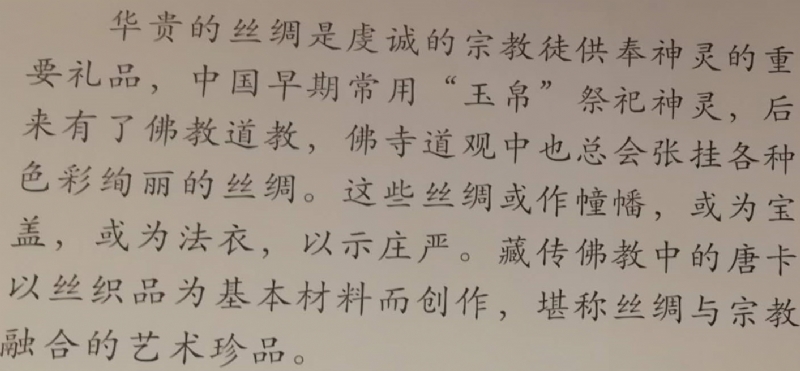 华贵的丝绸是虔诚的宗教徒供奉神灵的重
要礼品，中国早期常用“玉帛”祭祀神灵，后
来有了佛教道教，佛寺道观中也总会张挂各种
色彩绚丽的丝绸。这些丝绸或作幢幡，或为宝
盖，或为法衣，以示庄严。藏传佛教中的唐卡
以丝织品为基本材料而创作，堪称丝绸与宗教
融合的艺术珍品。